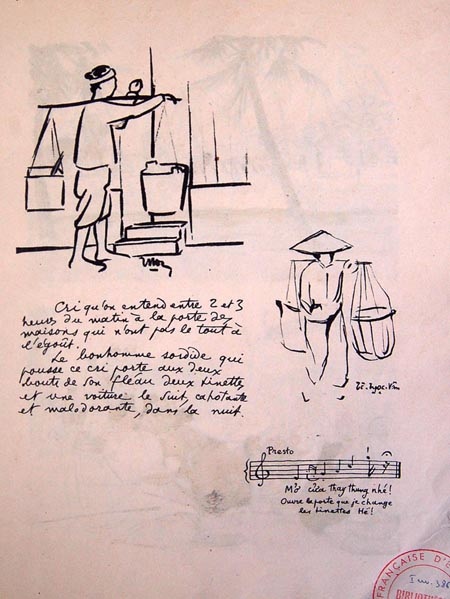 Cri qu'on entend entre 2 et 3
heures du matin à la porte des
maisons qui n'ont pas le tout à
l'égoût.
Le bonhomme sordide qui
pousse ce cri porte aux deux
bouts de son fléau deux tinettes,
et une voiture le suit, cahotante
et malodorante, dans la nuit.
Presto
Mở cửa thay thùng nhé!
Ouvre la porte que je change
les tinettes Hé!
FRANÇAISE D'E
BIBLIOTH